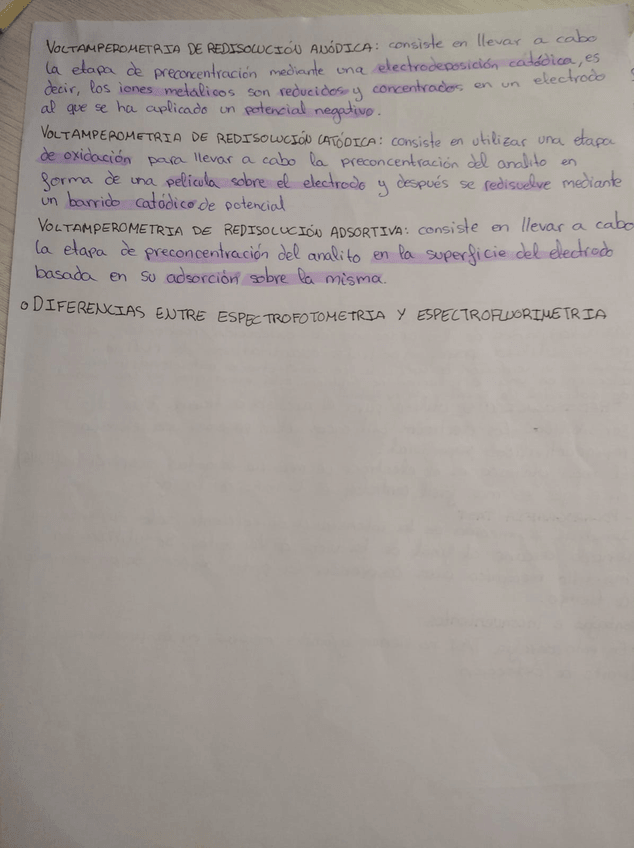 VOLTAMPEROMETRIA DE REDISOLUCIÓN ANÓDICA: consiste en llevar a cabo
la etapa de preconcentración mediante una electrodeposición catódica, es
decir, los iones metálicos son reducidos y concentrados en un electrodo
al que se ha aplicado un potencial negativo.
VOLTAMPEROMETRIA DE REDISOLUCIÓN CATÓDICA: consiste en utilizar una etapa
de oxidación para llevar a cabo la preconcentración del analito en
forma de una película sobre el electrodo y después se redisuelve mediante
un barrido catódico de potencial
VOLTAMPEROMETRIA DE REDISOLUCIÓN ADSORTIVA: consiste en llevar a cabo
la etapa de preconcentración del analito en la superficie del electrodo
basada en su adsorción sobre la misma.
o DIFERENCIAS ENTRE ESPECTROFOTOMETRIA Y ESPECTROFLUORIMETRIA